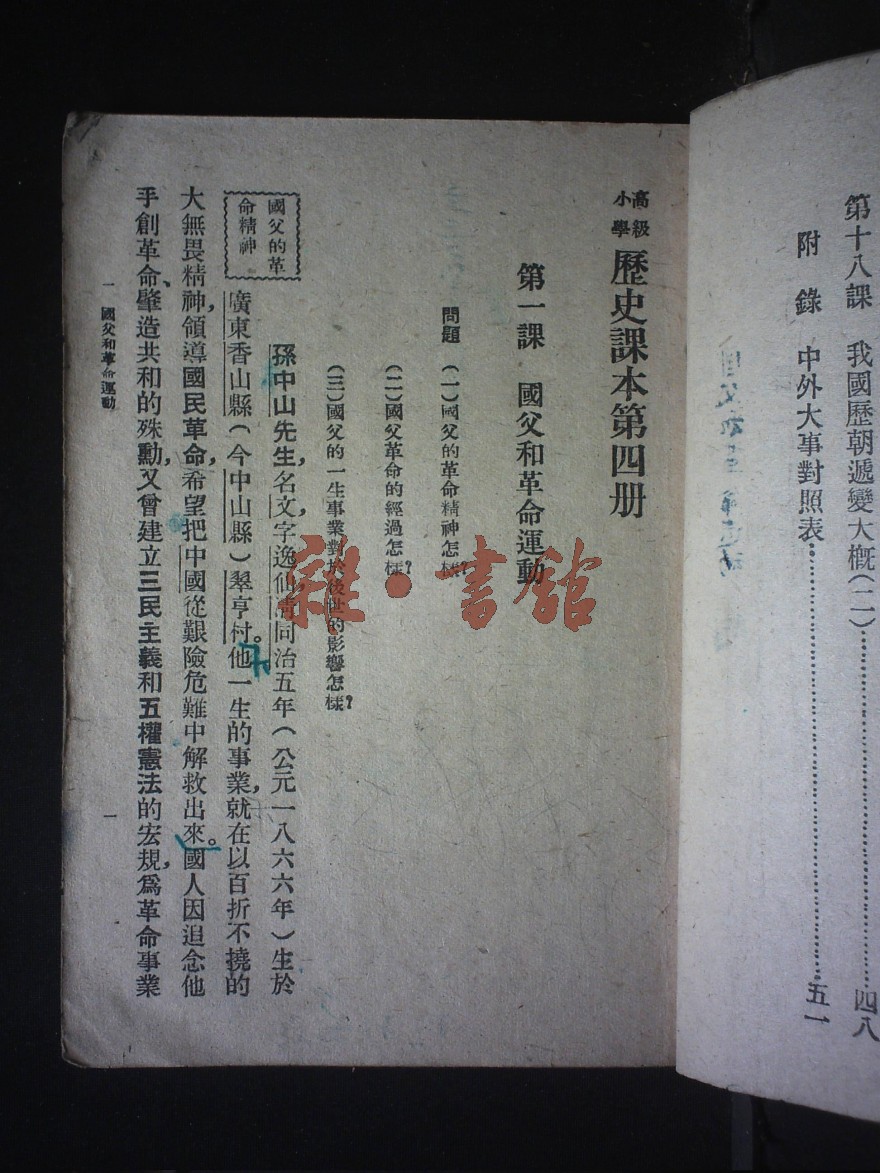 第十八課　我國歷朝遞變大概(二)……四八
附錄　中外大事對照表……五一
高級小學　歷史課本第四册
第一課　國父和革命運動
問題　(一)國父的革命精神怎樣？
(二)國父革命的經過怎樣？
(三)國父的一生事業對於後世的影響怎樣？
國父的革命精神
孫中山先生，名文，字逸仙，清同治五年(公元一八六六年)生於
廣東香山縣(今中山縣)翠亨村。他一生的事業，就在以百折不撓的
大無畏精神，領導國民革命，希望把中國從艱險危難中解救出來。國人因追念他
手創革命、肇造共和的殊勳，又曾建立三民主義和五權憲法的宏規，爲革命事業
一　國父和革命運動
一
雜·書館